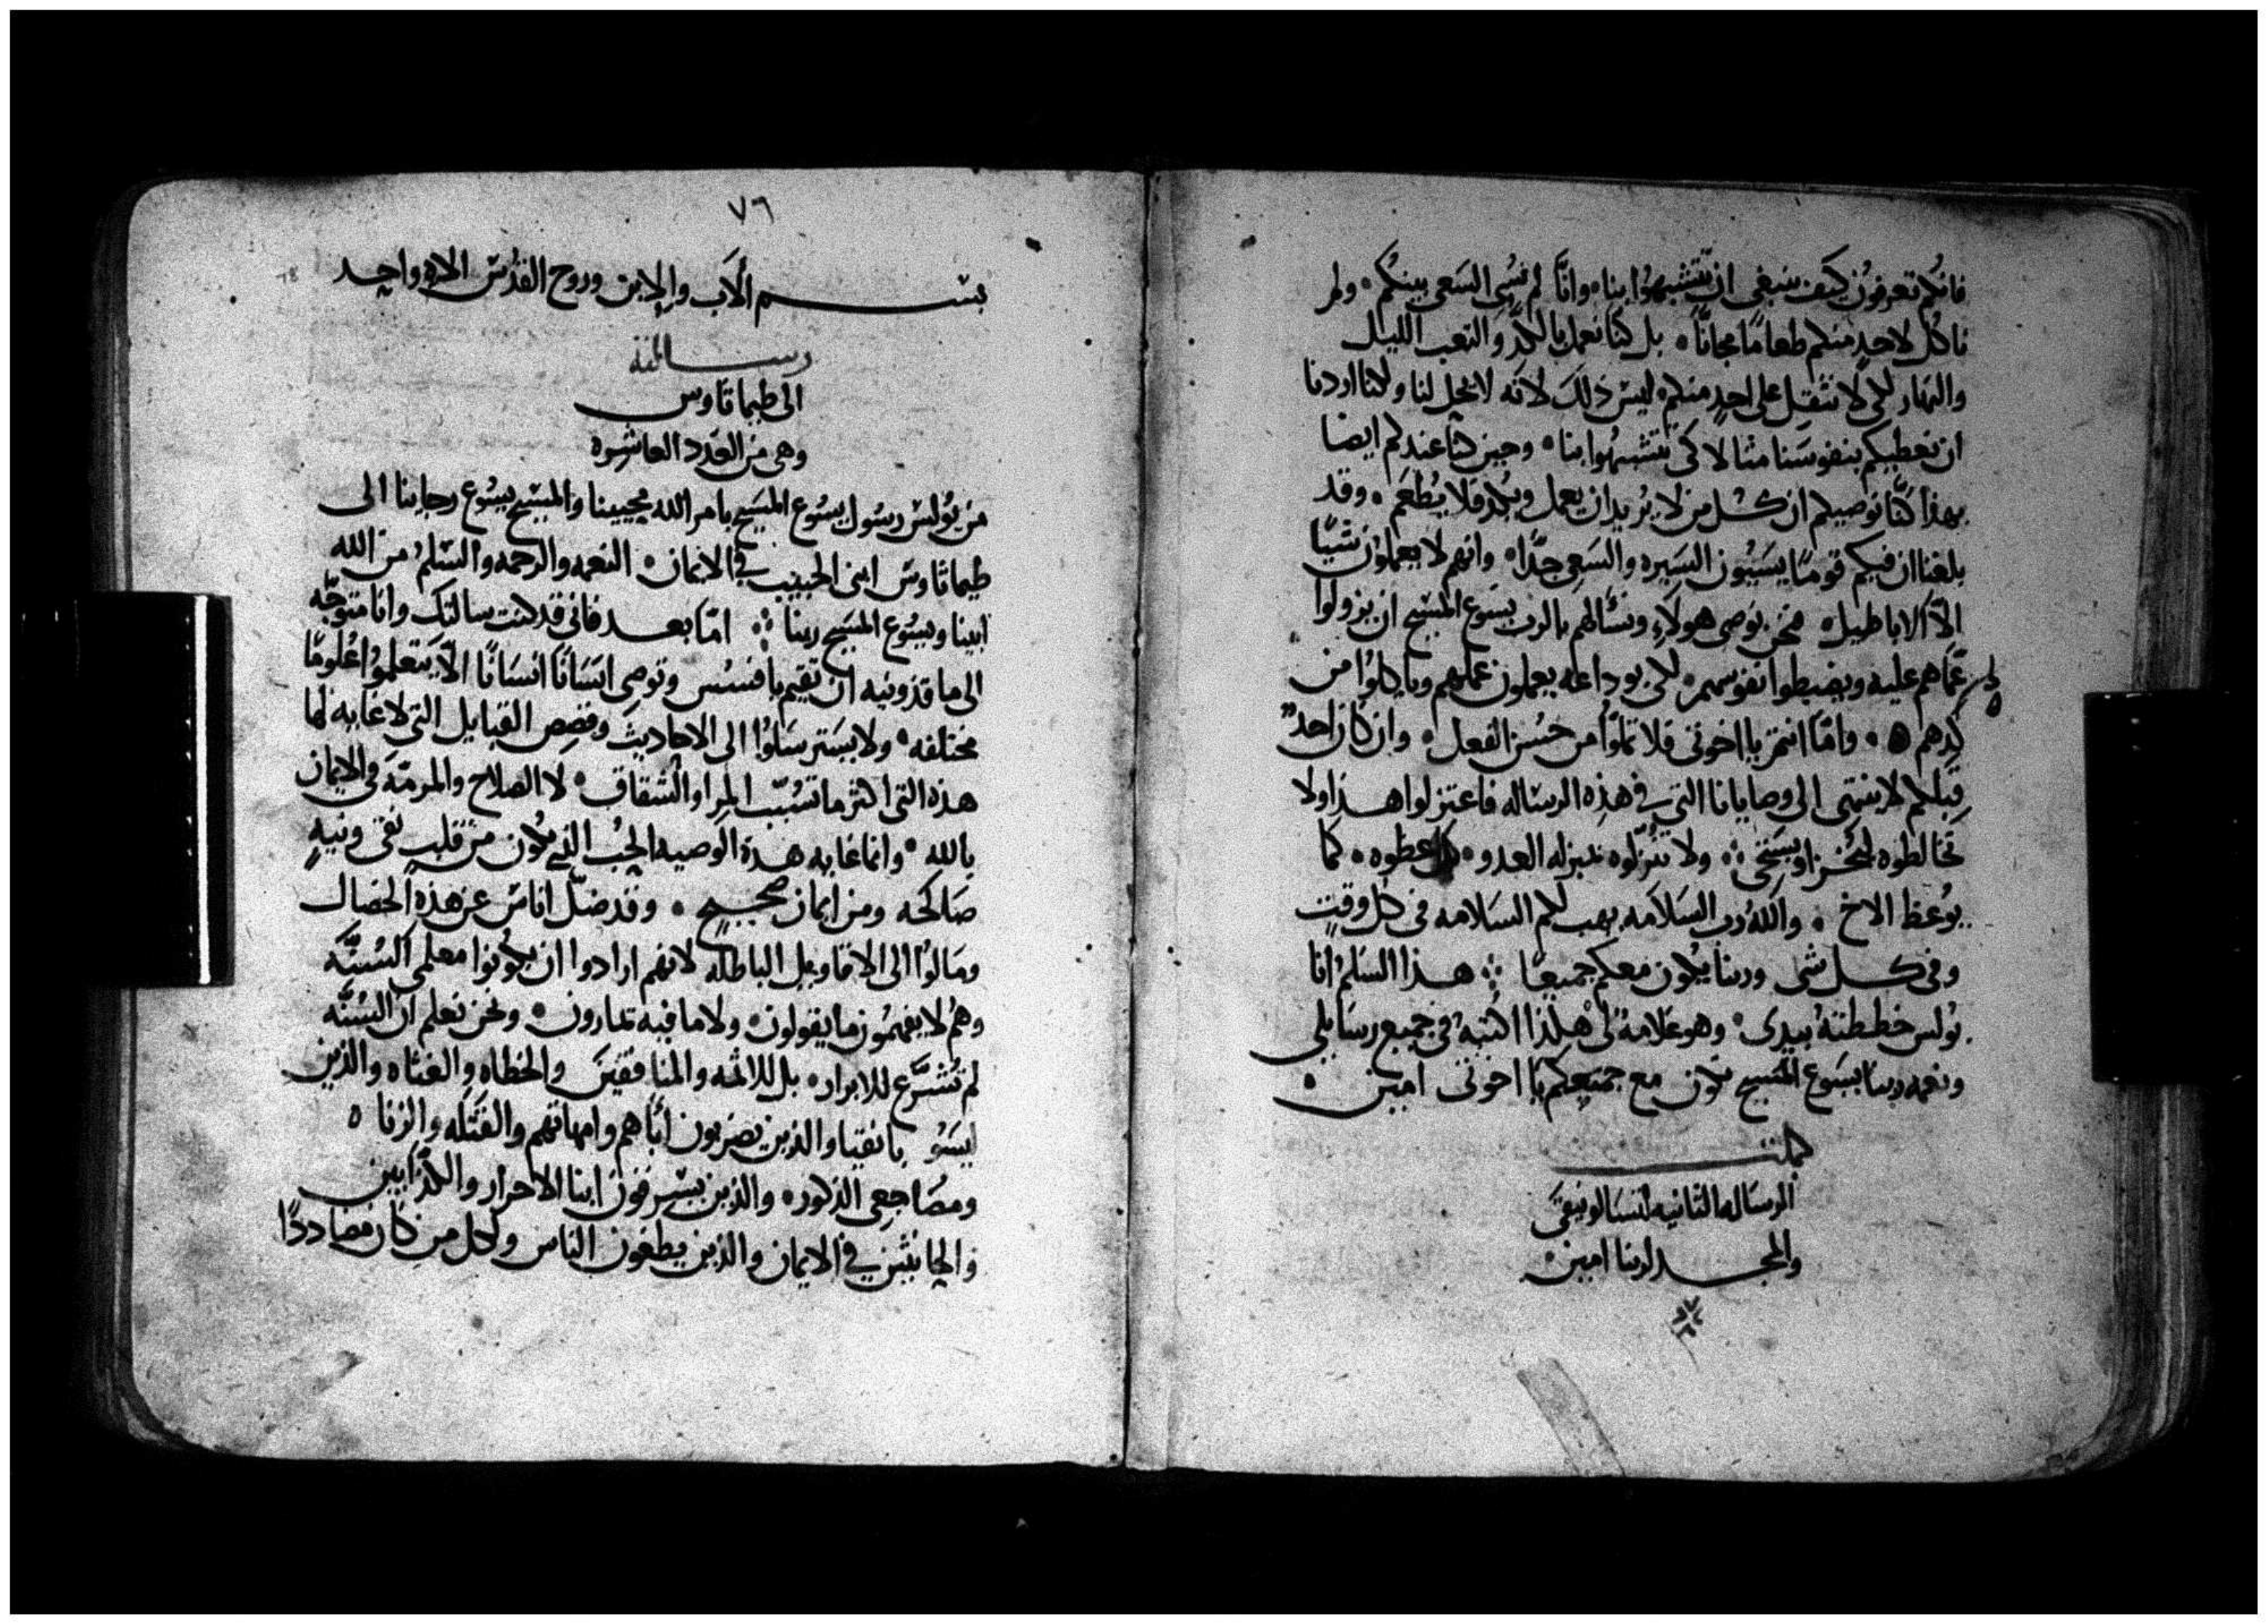 فانكم تعرفون كيف ينبغى ان تتشبهوا بنا وانّا لم نُسِى السَعى بينكُم ولم
ناكل لاحدٍ منكم طعامًا مجانًا بل كنّا نعمل بالكدّ والتعب الليل
والنهار لكى لا نثقل على احدٍ منكم ليس ذلك لانه لا يحل لنا ولكنا اردنا
ان نعطيكم بنفوسنا مثالا لاكى تتشبهوا بنا وحين كنا عندكم ايضا
بهذا كنّا نوصيكم ان كل من لا يُريد ان يعمل ويكد فلا يُطعَم وقد
بلغنا ان فيكم قومًا يسَيُون السَيره والسَعى جدًّا وانهم لا يعملون شيًا
الّا الاباطيل فنحن نوصى هولاء ونسألهم بالرب يسَوع المسَيح ان يزولوا
عمّا هم عليه ويضبطوا نفوسهم لكى بوداعه يعملون عملهم وياكلوا من
كدهم واما انتم يا اخوتى فلا تملوّا من حُسْن الفعل وان كان احدٌ
قبلكم لا ينتهى الى وصايانا التى فى هذه الرسَاله فاعتزلوا هذا ولا
تخالطوه ليُخزا ويسَتحى ولا تنزلوه بمنزله العدو بل عظوه كما
يُوعظ الاخ والله رب السَلامه يهب لكم السَلامه فى كل وقتٍ
وفى كل شى وربنا يكون معكم جميعًا هذا السَلم انا
بُولس خططته بيدى وهو علامة لى هكذا اكتبه فى جميع رسَايلى
ونعمه ربنا يسَوع المسَيح تكون مع جميعكم يا اخوتى امين
كملت
الرسَاله الثانيه لتسَالونيقى
والمجد لربنا امين
٧٦
بسم الاَب والابن وروح القدُس الاه واحد
رسالته
الى طيماثاوس
وهى من العدد العاشره
من بُولس رسُول يسُوع المسَيح بامر الله محيينا والمسَيح يسُوع رجاينا الى
طيماثاوس ابنى الحبيب فى الايمان النعمه والرحمه والسَلم من الله
ابينا ويسُوع المسَيح ربنا امّا بعد فانى قد كنت سالتك وانا متوجّه
الى ماقذونيه ان تقيم بافسُس وتوصى انسَانًا انسَانًا الّا يتعلموا علُومًا
مختلفه ولا يسَترسَلوُا الى الاحاديث وقصص القبايل التى لا غايه لها
هذه التى اكثر ما تسُبّب المِرا والشقاق لا الصلاح والمرمّه فى الايمان
بالله وانما غايه هذه الوصيه الحُب الذى يكون من قلب نقى ونيهٍ
صَالحه ومن ايمان صحيح وقد ضلّ اناس عن هذه الخصال
ومَالوُا الى الاقاويل الباطله لانهم ارادوا ان يكونوا معلمى السُنّه
وهُم لا يفهمُون ما يقولون ولا ما فيه يمارون ونحن نعلم ان السُنّه
لم تُشرَّع للابرار بل للاثمه والمنافقين والخطاه والعُتاه والذين
ليسَوُ بانقيا والذين يضربون اباهم وامهاتهم والقَتله والزناه
ومضَاجعى الذكور والذين يسَرقون ابنا الاحرار والكذّابين
والحانثين فى الايمان والذين يطغون الناس ولكل من كان مضاددًا